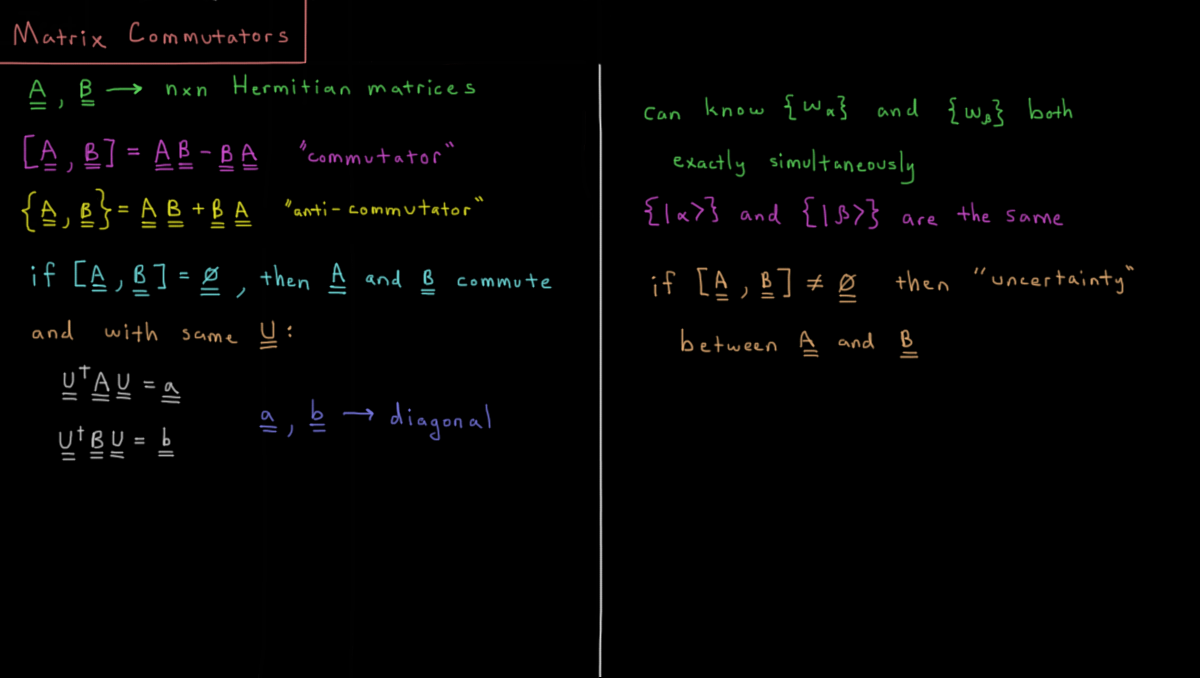 Matrix Commutators
A, B → nxn Hermitian matrices
[A, B] = A B - B A "commutator"
{A, B} = A B + B A "anti-commutator"
if [A, B] = ∅, then A and B commute
and with same U:
U†AU = a
a, b → diagonal
U†BU = b
can know {ωα} and {ωβ} both
exactly simultaneously
{|α>} and {|β>} are the same
if [A, B] ≠ ∅ then "uncertainty"
between A and B